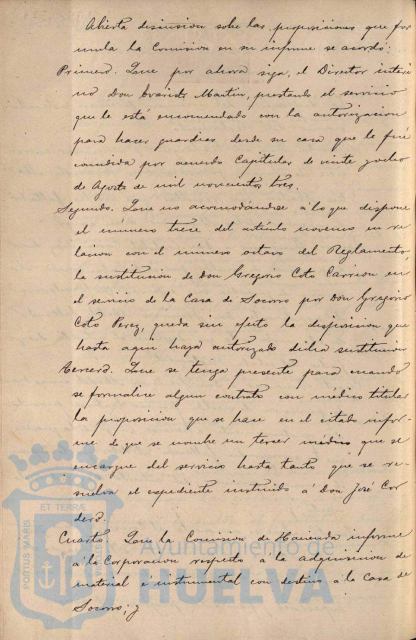 Abierta discusion sobre las proposiciones que for
mula la Comision en su informe se acordó:
Primero. Que por ahora siga, el Director interi
no Don Evaristo Martin, prestando el servicio
que le está encomendado con la autorizacion
para hacer guardias desde su casa que le fue
concedida por acuerdo Capitular de veinte y ocho
de Agosto de mil novecientos tres.
Segundo. Que no acomodándose á lo que dispone
el número trece del artículo noveno en re
lacion con el número octavo del Reglamento,
la sustitucion de Don Gregorio Coto Carrion en
el servicio de la Casa de Socorro por Don Gregorio
Coto Perez, queda sin efecto la disposicion que
hasta aquí haya autorizado dicha sustitucion
Tercero. Que se tenga presente para cuando
se formalice algun contrato con médico titular
la proposicion que se hace en el citado infor-
me de que se nombre un tercer médico que se
encargue del servicio hasta tanto que se re-
suelva el expediente instruido á Don José Cor
dero.
Cuarto. Que la Comision de Hacienda informe
á la Corporacion respecto á la adquisicion de
material é instrumental con destino á la Casa de
Socorro; y
PORTUS MARIS
ET TERRE
Ayuntamiento de
HUELVA